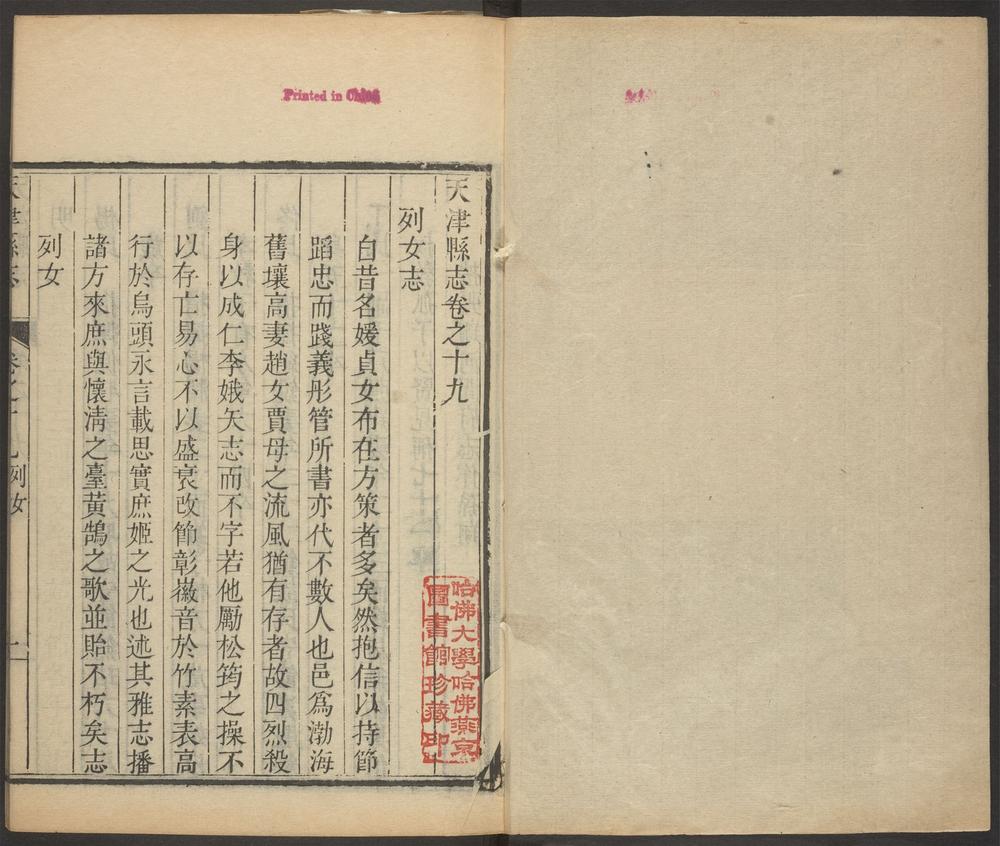 Printed in China
天津縣志卷之十九
列女志
自昔名媛貞女布在方策者多矣然抱信以持節
蹈忠而踐義彤管所書亦代不數人也邑爲渤海
舊壤高妻趙女賈母之流風猶有存者故四烈殺
身以成仁李娥矢志而不字若他勵松筠之操不
以存亡易心不以盛衰改節彰徽音於竹素表高
行於烏頭永言載思實庶姬之光也述其雅志播
諸方來庶與懷淸之臺黃鵠之歌並貽不朽矣志
列女
天津縣志 卷之十九列女 一
哈佛大學哈佛燕京
圖書館珍藏印